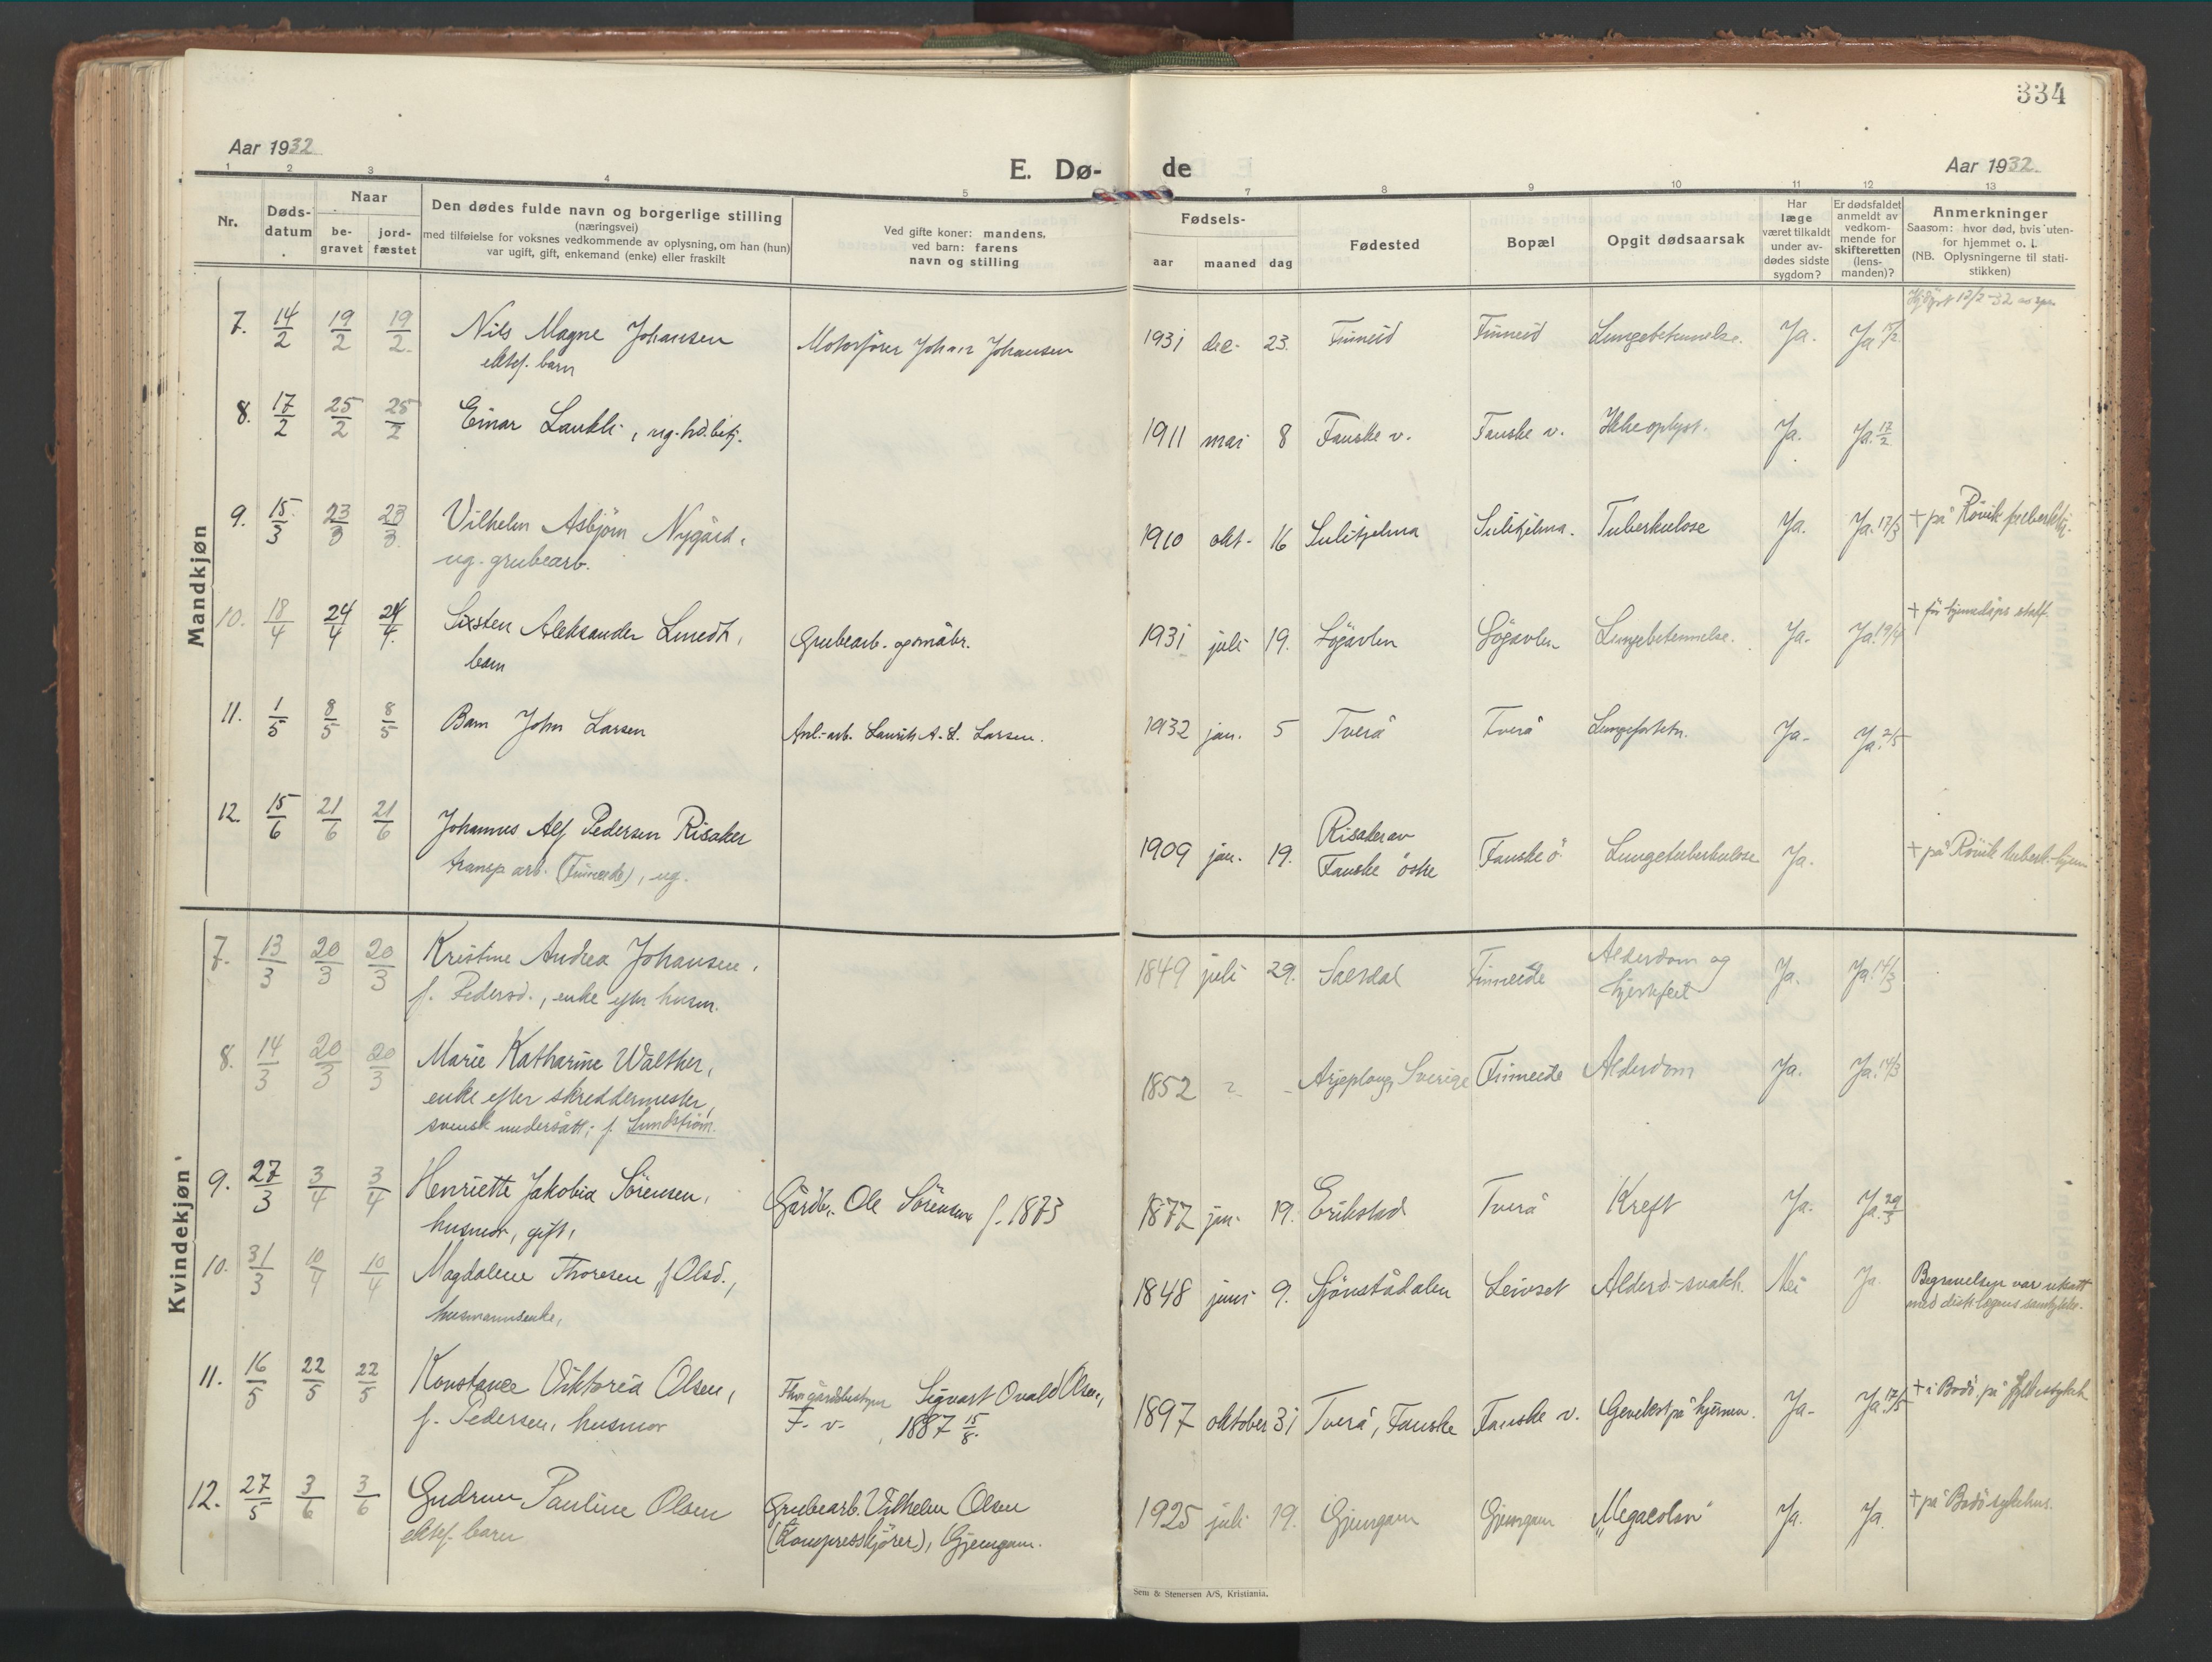 334
Aar 1932
E. Dø-
de
Aar 1932.
1 2 3 4 5 7 8 9 10 11 12 13
Nr.
Døds-
datum
Naar
be-
gravet
jord-
fæstet
Den dødes fulde navn og borgerlige stilling
(næringsvei)
med tilføielse for voksnes vedkommende av oplysning, om han (hun)
var ugift, gift, enkemand (enke) eller fraskilt
Ved gifte koner: mandens,
ved barn: farens
navn og stilling
Fødsels-
aar maaned dag
Fødested
Bopæl
Opgit dødsaarsak
Har
læge
været tilkaldt
under av-
dødes sidste
sygdom?
Er dødsfaldet
anmeldt av
vedkom-
mende for
skifteretten
(lens-
manden)?
Anmerkninger
Saasom: hvor død, hvis uten-
for hjemmet o. l.
(NB. Oplysningerne til stati-
stikken)
Mandkjøn
7. 14/2 19/2 19/2. Nils Magne Johansen
ektef. barn
Motorfører Johan Johansen
1931 des. 23. Finneid Finneid Lungebetennelse. Ja. Ja 15/2
12/2-32
8. 17/2 25/2 25/2 Einar Laukli, ug. hd.betj.
1911 mai 8 Fauske v. Fauske v. Ikke oplyst. Ja. Ja. 17/2
9. 15/3 23/3 23/3. Vilhelm Asbjörn Nygård,
ug. grubearb.
1910 okt. 16 Sulitjelma Sulitjelma. Tuberkulose Ja. Ja. 17/3 + på Rövik tuberkhj.
10. 18/4 24/4 24/4. Sixsten Aleksander Lmedh,
barn
Grubearb. og småbr.
1931 juli 19. Lögavlen Lögavlen Lungebetennelse. Ja. Ja. 19/4 + før hjemedåps stadf.
11. 1/5 8/5 8/5 Barn John Larsen
Anl.-arb. Laurits A. L. Larsen.
1932 jan. 5 Tverå Tverå Ja. Ja. 2/5
12. 15/6 21/6 21/6 Johannes Alf Pedersen Risaker
transp arb. (Finneide), ug.
1909 jan. 19. Risaker av
Fauske östre Fauske ö. Lungetuberkulose Ja. + på Rövik tuberk. hjem
Kvindekjøn
7. 13/3 20/3 20/3 Kristine Andrea Johansen,
f. Pedersd., enke efter husm.
1849 juli 29. Saltdal Finneide Alderdom og
hjertefeil Ja. Ja. 14/3
8. 14/3 20/3 20/3 Marie Katharine Walther,
enke efter skreddermester,
svensk undersått; f. Lundström.
1852 ? - Arjeplong, Sverige Finneide Alderdom Ja. Ja. 14/3
9. 27/3 3/4 3/4 Henriette Jakobia Sörensen,
husmor, gift,
Gårdbr. Ole Sörensen f. 1873
1877 jan. 19. Erikstad Tverå Kreft Ja. Ja. 29/3
10. 31/3 10/4 10/4 Magdalene Thoresen f. Olsd.,
husmannsenke,
1848 juni 9. Sjönstådalen Leivset Alderd.-svakh. Nei Ja. Begravelsen var utsatt
med distr.lægens samtykke.
11. 16/5 22/5 22/5 Konstance Viktoria Olsen,
f. Pedersen, husmor
gårdbestyrer Sigvart Ovald Olsen,
F. v. 1887 15/8.
1897 oktober 31 Tverå, Fauske Fauske v. Gevekst på hjernen. Ja. Ja. 17/5 + i Bodö, på sykeh.
12. 27/5 3/6 3/6 Gudrun Pauline Olsen
ektef. barn
Grubearb. Vilhelm Olsen
(Kompresskjörer), Gjemgam.
1925 juli 19. Gjemgam Gjemgam „Megacolon" Ja. Ja. + på Bodö sykehus.
Sem & Stenersen A/S, Kristiania.